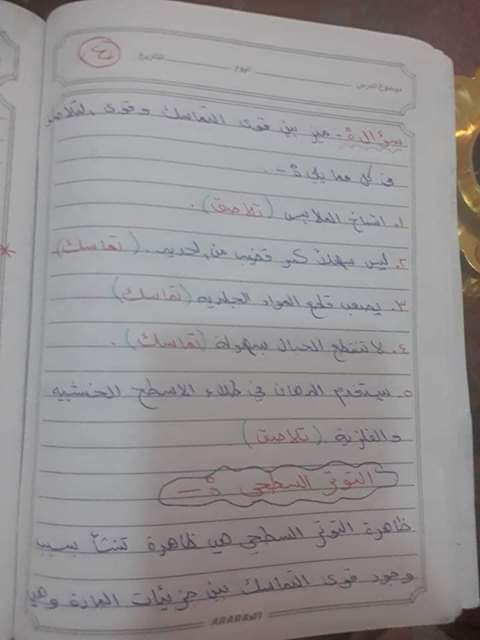 ٤
موضوع الدرس اليوم التاريخ
سؤال ٥:- ميز بين قوى التماسك وقوى التلاصق
في كل مما يلي:-
١. اتساخ الملابس (تلاصق).
٢. ليس سهلاً كسر قضيب من الحديد. (تماسك).
٣. يصعب قطع المواد الصلبة (تماسك)
٤. لا تنقطع الحبال بسهولة (تماسك).
٥. يستخدم الدهان في طلاء الاسطح الخشبية
والفلزية (تلاصق).
التوتر السطحي :-
ظاهرة التوتر السطحي هي ظاهرة تنشأ بسبب
وجود قوى التماسك بين جزيئات المادة وهي
ARABAH